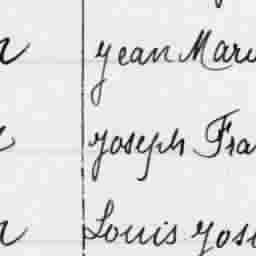 Jean Mari
Joseph Fra
Louis Jose